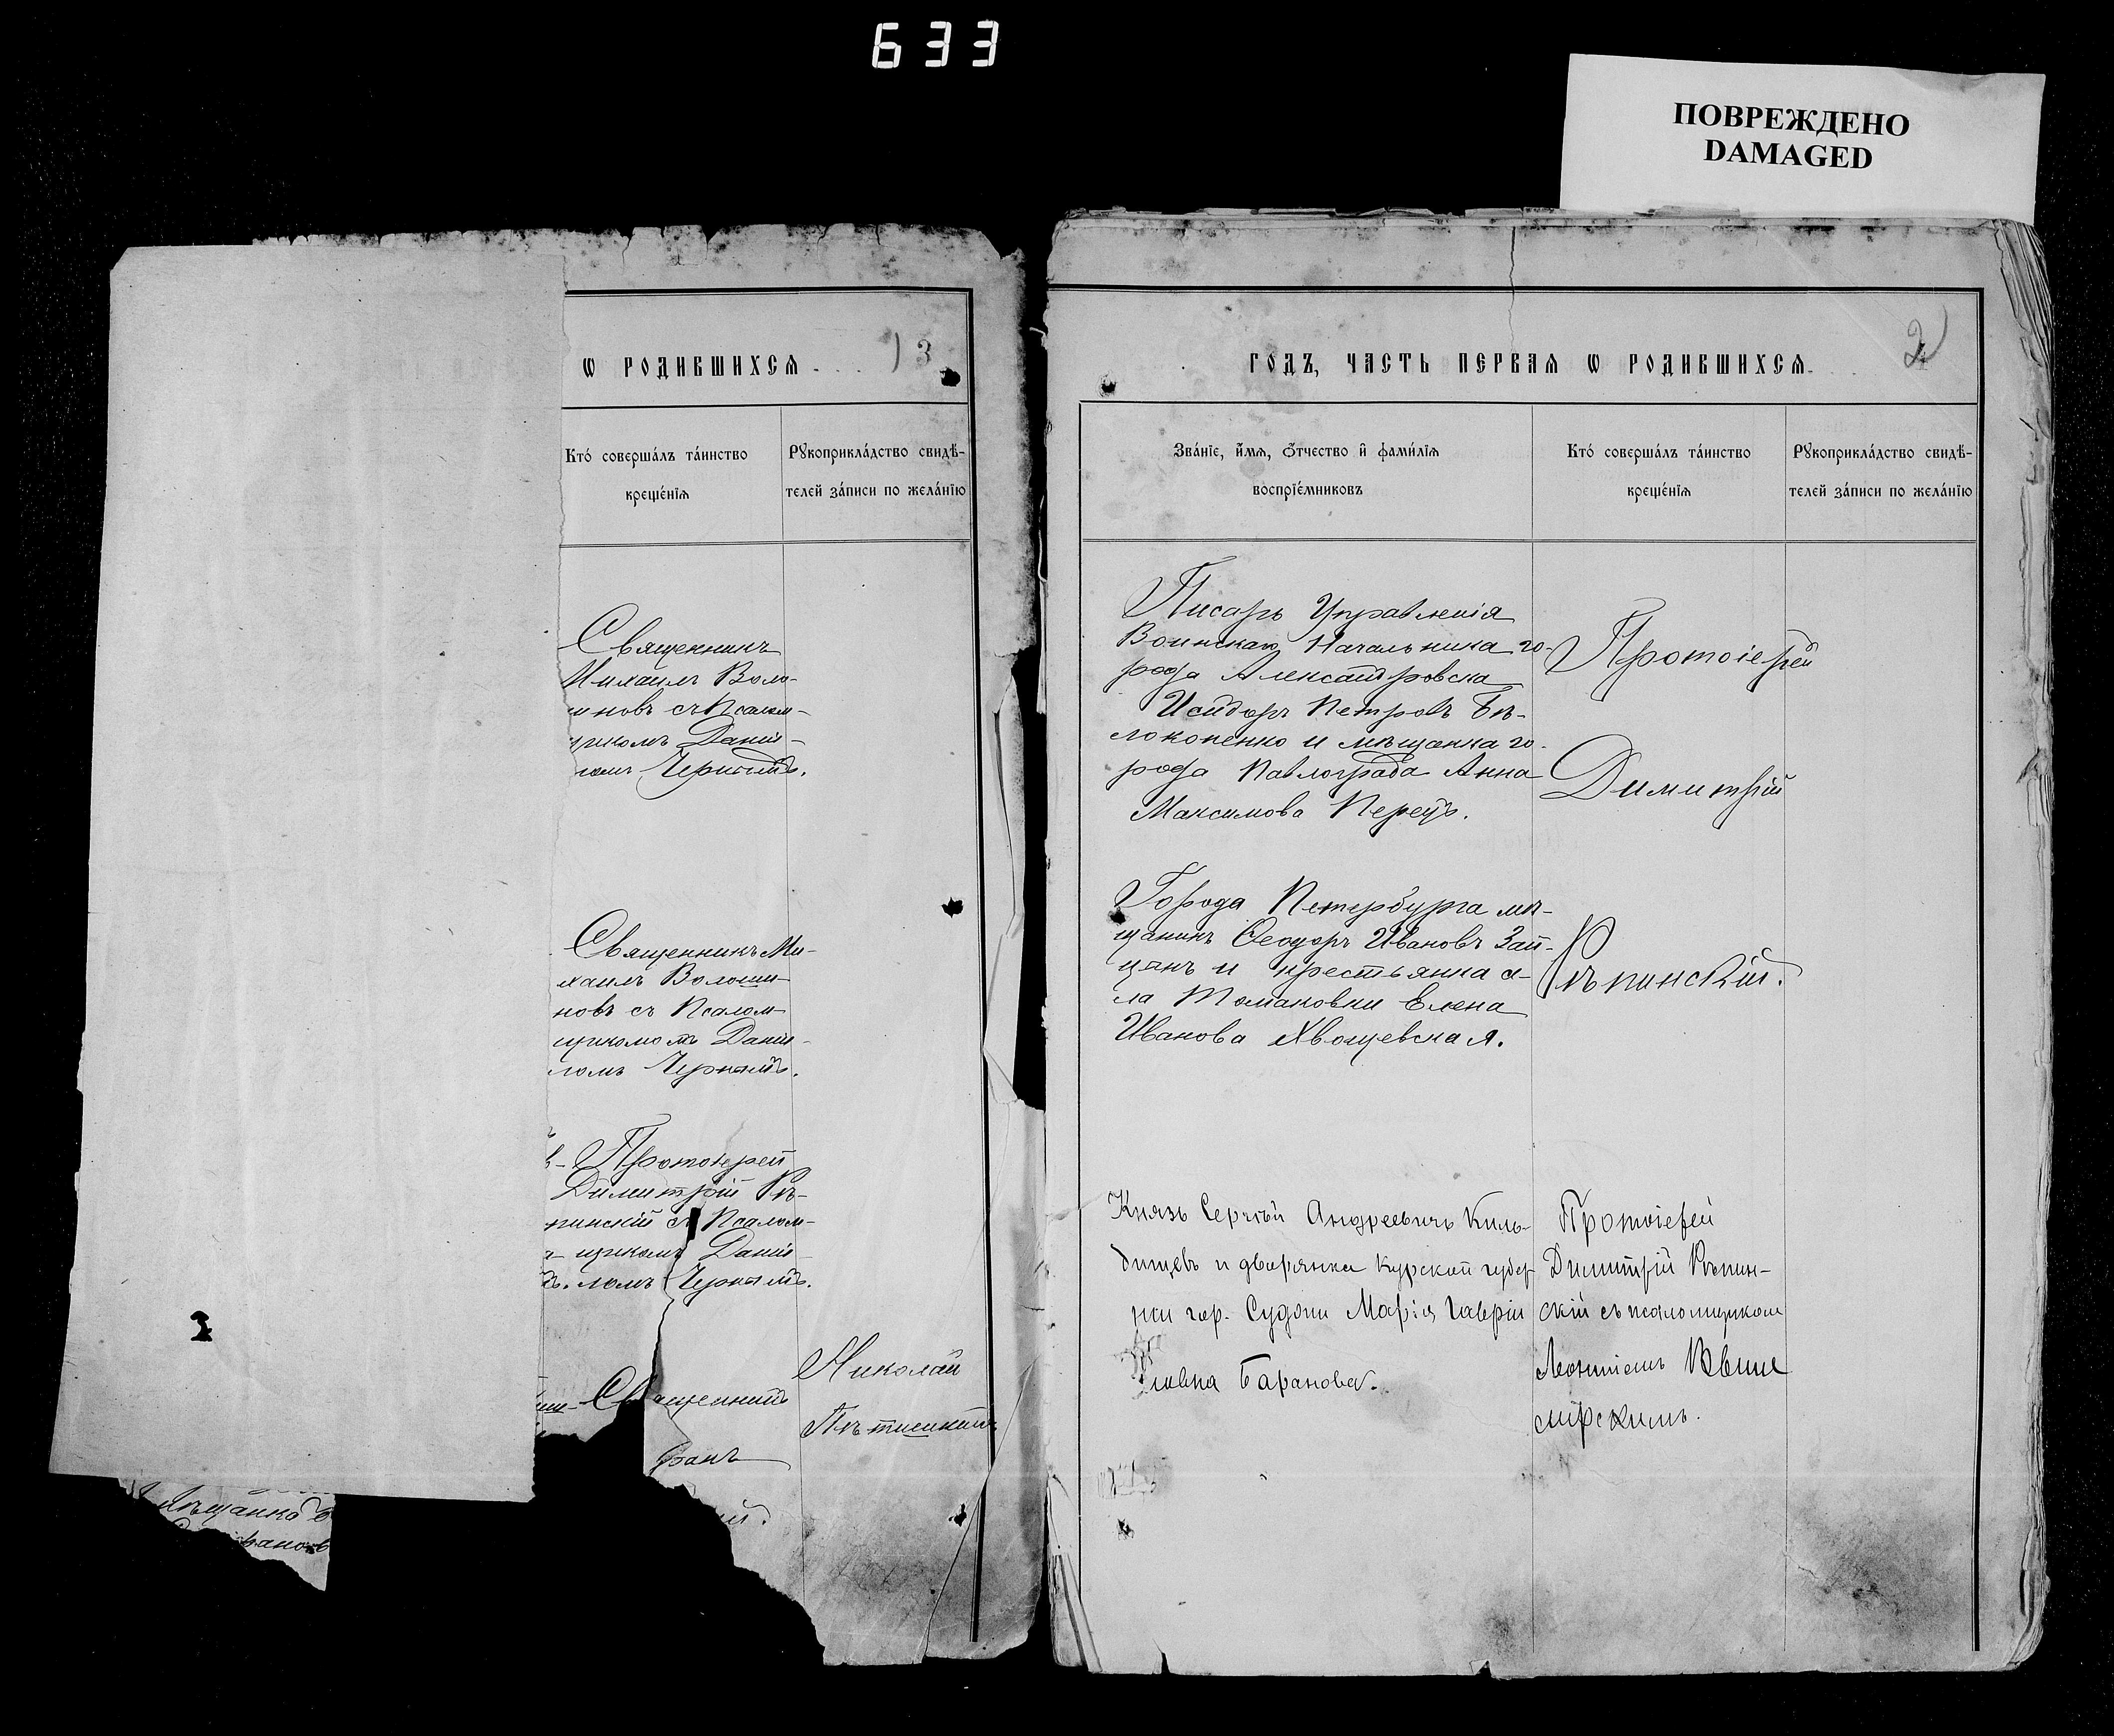 633
ПОВРЕЖДЕНО
DAMAGED
Ѡ РОДИВШИХСѦ
3
Кто́ соверша́лъ та́инство
креще́нїѧ
Рꙋкоприкла́дство свидѣ-
телей за́писи по жела́нїю
Священникъ
Михаилъ Воло-
иновъ съ Псалом-
Даніи-
ломъ Чернымъ.
Священникъ Ми-
хаилъ Волоши-
новъ съ Псалом-
щикомъ Даніи-
ломъ Чернымъ.
Протоіерей
Димитрій Рѣ-
пинскій съ Псалом-
щикомъ Даніи-
ломъ Чернымъ.
Священникъ
Николай
мѣщанка
2
ГОДЪ, ЧАСТЬ ПЕРВАѦ Ѡ РОДИВШИХСѦ
2
Зва́нїе, и҆́мѧ, ѻ҆́тчество и҆ фами́лїѧ
воспрїе́мниковъ
Кто́ соверша́лъ та́инство
креще́нїѧ
Рꙋкоприкла́дство свидѣ-
телей за́писи по жела́нїю
Писарь Управленія
Воинскаго Начальника го-
рода Александровска
Исидоръ Петровъ Бѣ-
локопенко и мѣщанка го-
рода Павлограда Анна
Максимова Перецъ.
Протоіерей
Димитрій
Рѣпинскій.
Города Петербурга мѣ-
щанинъ Ѳеодоръ Ивановъ Зай-
цанъ и крестьянка се-
ла Томаковки Елена
Иванова Хвощевская.
Князь Сергѣй Андреевичъ Киль-
дишевъ и дворянка Курской губер
ніи гор. Суджи Марія Гаврі
ловна Баранова.
Протоіерей
Димитрій Рѣпин-
скій съ псаломщиком
Леонтіемъ